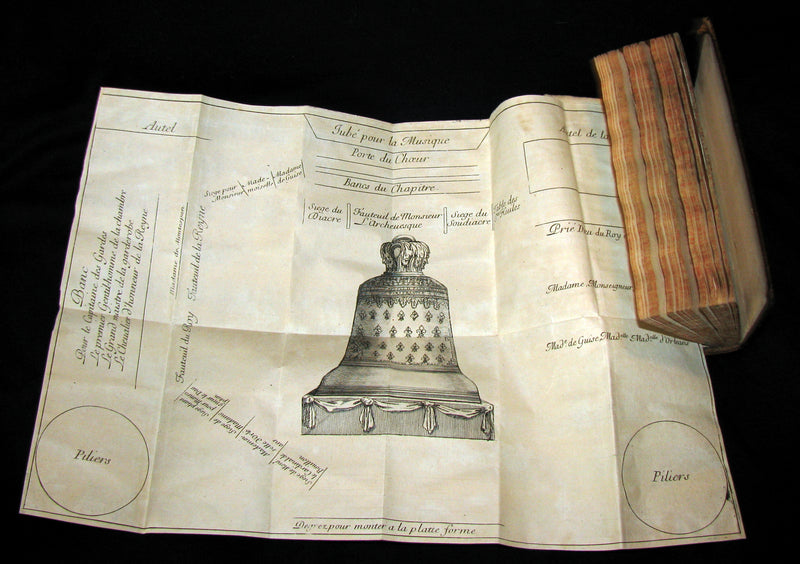 Autel
Jubé pour la Musique
Porte du Chœur
Bancs du Chapitre
Autel de la
Siege pour Monsieur
Made-moiselle
Madame de Guise
Siege du Diacre
Fauteuil de Monsieur L'Archeuesque
Siege du Soudiacre
Table des
Banc
Pour le Capitaine des Gardes
Le premier Gentilhomme de la chambre
Le Grand maistre de la garderobe
Le Cheualier d'honneur de la Reyne
Fauteuil du Roy
Fauteuil de la Reyne
Prié Dieu du Roy
Madame Monseigneur
Mad.e de Guise Mad.elle Mad.elle d'Orleans
Piliers
Piliers
Degrez pour monter a la plate forme